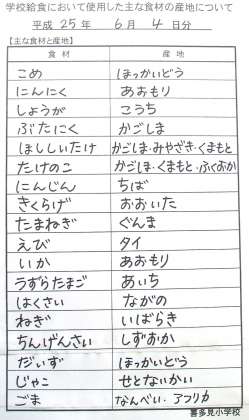 学校給食において使用した主な食材の産地について
平成 25 年 6 月 4 日分
【主な食材と産地】
食材 産地
こめ ほっかいどう
にんにく あおもり
しょうが こうち
ぶたにく かごしま
ほししいたけ かごしま・みやざき・くまもと
たけのこ かごしま・くまもと・ふくおか
にんじん ちば
きくらげ おおいた
たまねぎ ぐんま
えび タイ
いか あおもり
うずらたまご あいち
はくさい ながの
ねぎ いばらき
ちんげんさい しずおか
だいず ほっかいどう
じゃこ せとないかい
ごま なんべい・アフリカ
喜多見小学校